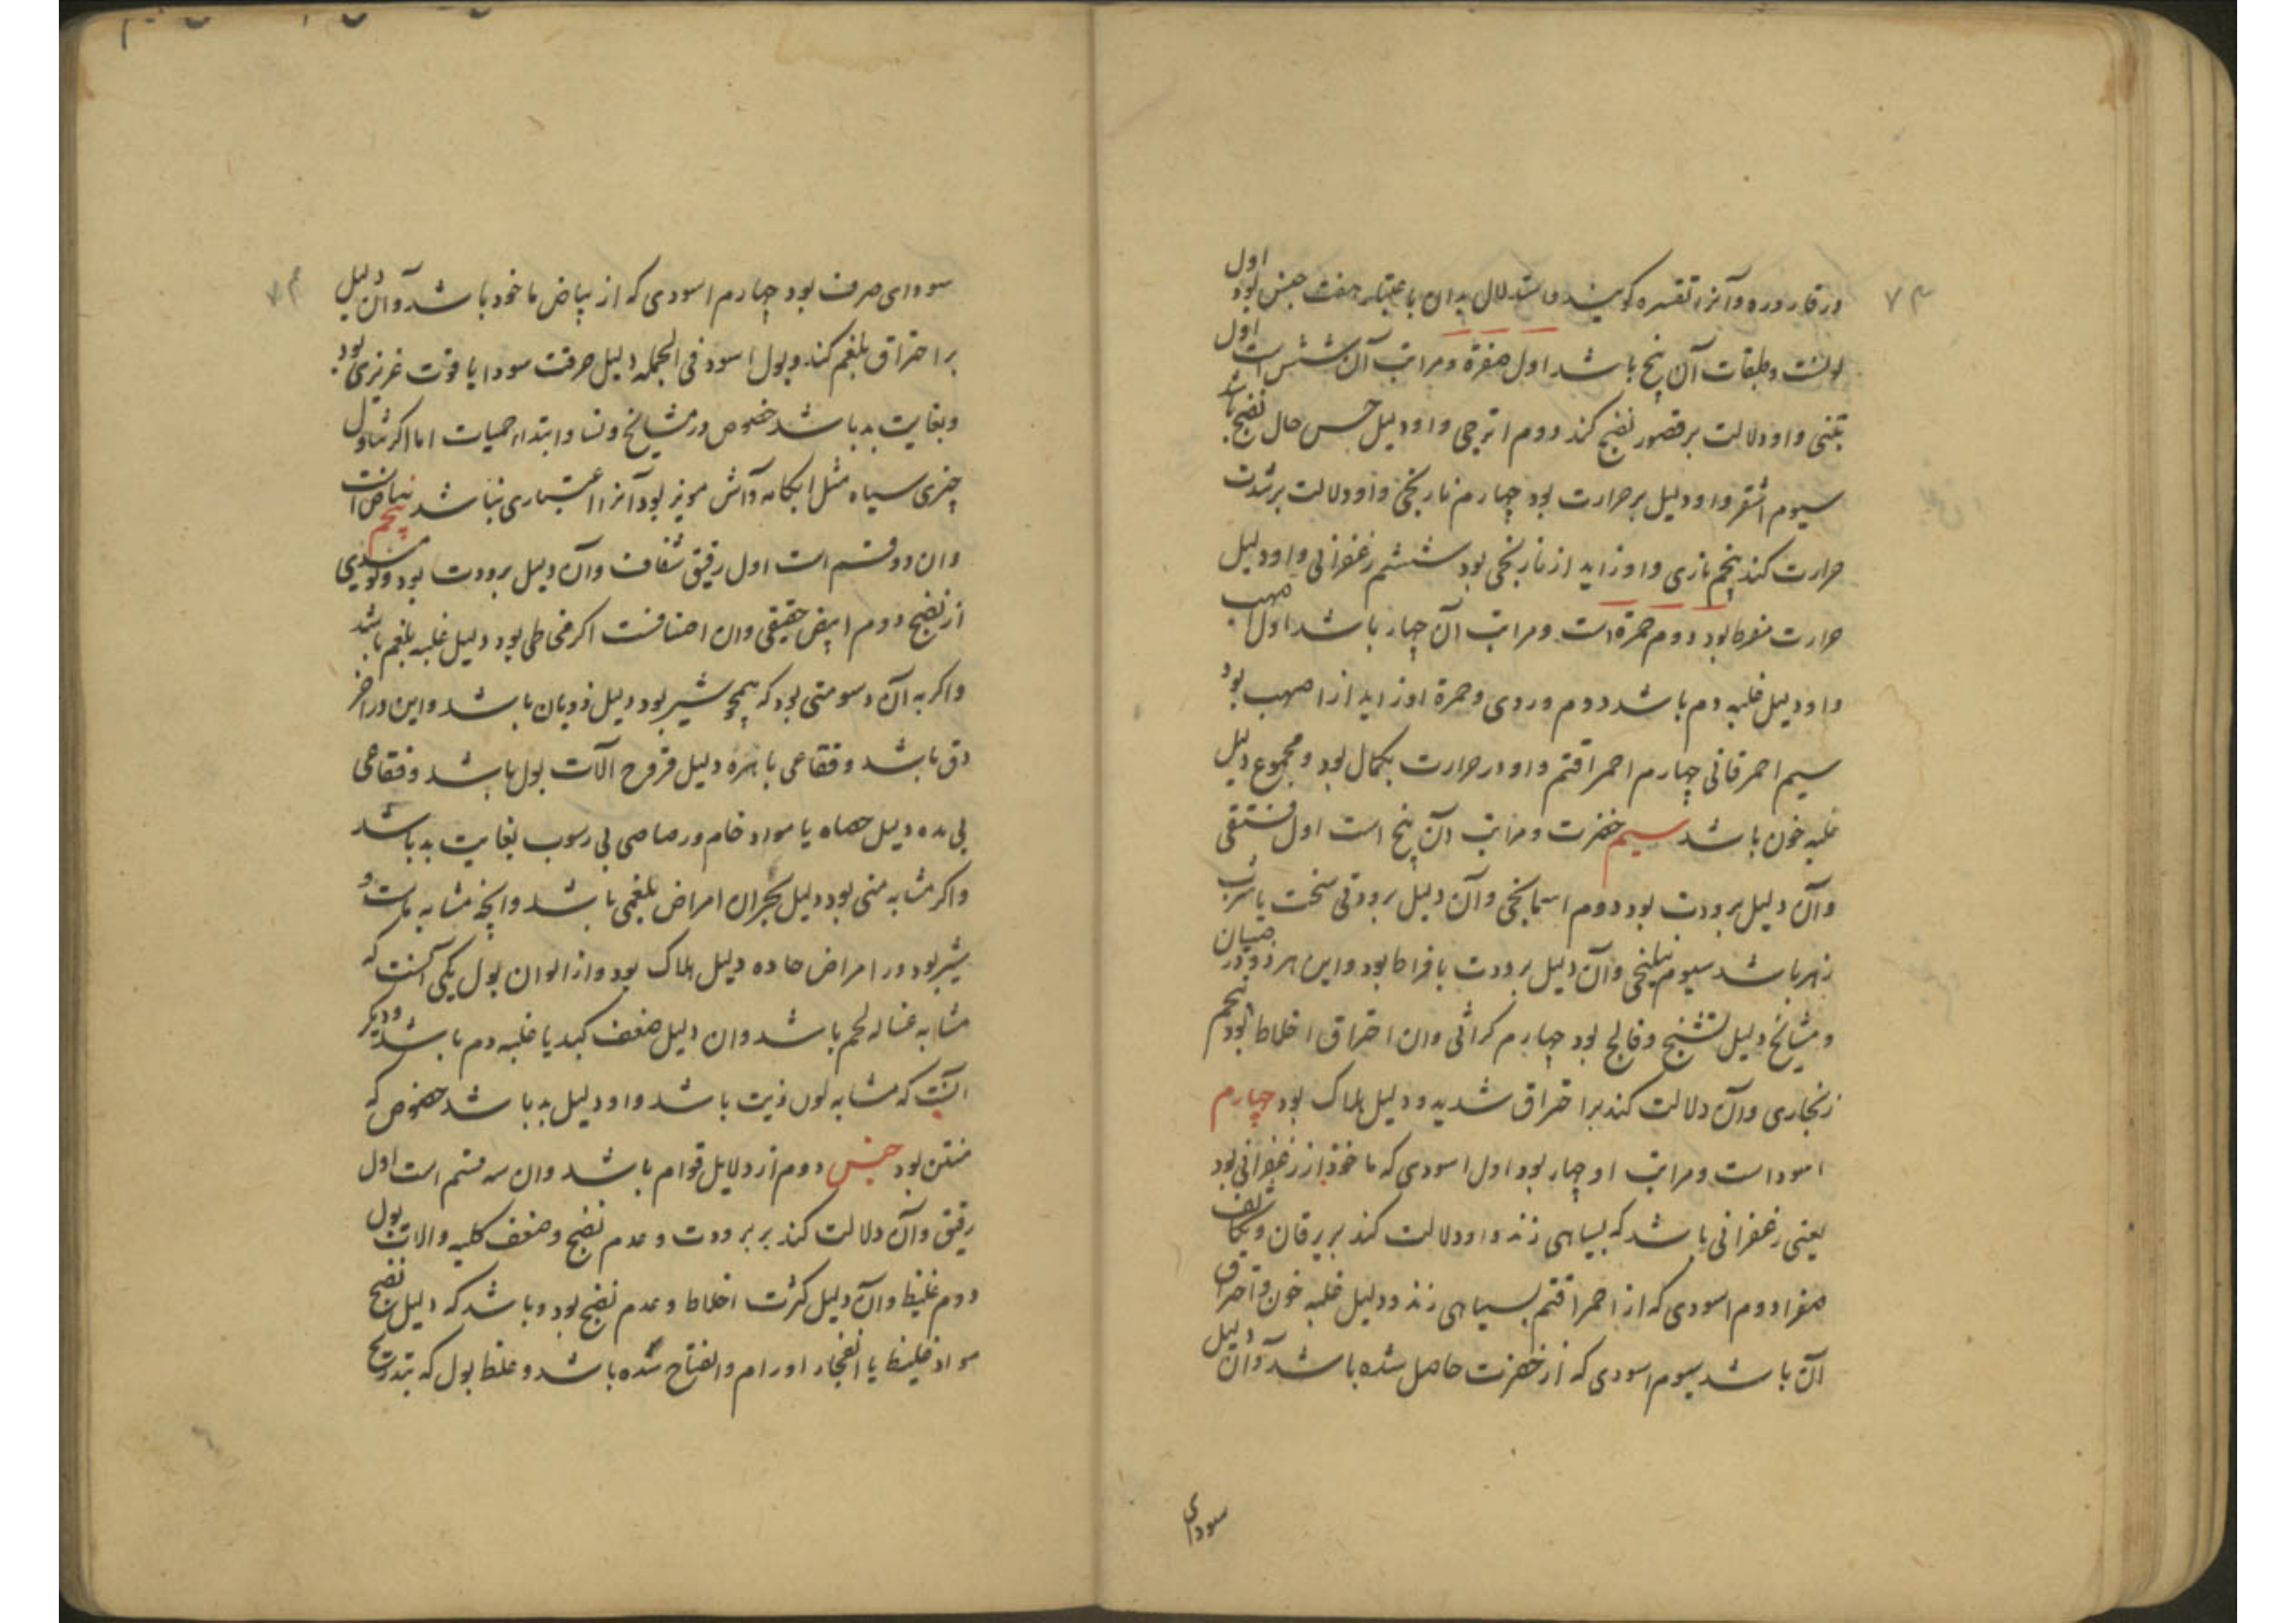 در قاروره و آنرا تفسره کویند و استدلال بدان باعتبار هفت جنس بود اول
لونست و طبقات آن پنج باشد اول صفرة و مراتب آن شش است اول
تبنی و او دلالت بر قصور نضج کند دوم اترجی و او دلیل حسن حال نضج باشد
سیوم اشقر و او دلیل بر حرارت بود چهارم نارنجی و او دلالت بر شدت
حرارت کند پنجم ناری و او زاید از نارنجی بود ششم زعفرانی و او دلیل
حرارت مفرط بود دوم حمرة است و مراتب آن چهار باشد اول اصهب
و او دلیل غلبه دم باشد دوم وردی و حمرة او زاید از اصهب بود
سیم احمر قانی چهارم احمر اقتم و او در حرارت بکمال بود و مجموع دلیل
غلبه خون باشد سیم خضرت و مراتب آن پنج است اول فستقی
و آن دلیل برودت بود دوم اسمانجی و آن دلیل برودتی سخت یا شرب
زهر باشد سیوم نیلنجی و آن دلیل برودت بافراط بود و این هر دو در صبیان
و مشایخ دلیل تشنج و فالج بود چهارم کراثی وان احتراق اخلاط بود پنجم
زنجاری و آن دلالت کند بر احتراق شدید و دلیل هلاک بود چهارم
اسود است و مراتب او چهار بود اول اسودی که ماخوذ از زعفرانی بود
یعنی زعفرانی باشد که بسیاهی زند و او دلالت کند بر یرقان و تکاثف
صفرا دوم اسودی که از احمر اقتم بسیاهی زند و دلیل غلبه خون و احتراق
آن باشد سیوم اسودی که از خضرت حاصل شده باشد و آن دلیل
سودای
سودای صرف بود چهارم اسودی که از بیاض ماخود باشد و آن دلیل
بر احتراق بلغم کند و بول اسود فی الجمله دلیل حرقت سودا یا فوت غریزی بود
و بغایت بد باشد خصوص در مشایخ و نسا و ابتداء حمیات اما اکر تناول
چیزی سیاه مثل ابکامه و آش مویز بود آنرا اعتباری نباشد پنجم بیاض است
وان دو قسم است اول رقیق شفاف و آن دلیل برودت بود و نومیدی
از نضج دوم ابیض حقیقی وان اصنافست اکر مخاطی بود دلیل غلبه بلغم باشد
و اکر به آن دسومتی بود که همچو شیر بود دلیل ذوبان باشد و این در اخر
دق باشد و فقاعی با مده دلیل قروح الآت بول باشد و فقاعی
بی مده دلیل حصاه یا مواد خام و رصاصی بی رسوب بغایت بد باشد
و اکر مشابه منی بود دلیل بحران امراض بلغمی باشد و انچه مشابه ماست و
شیر بود در امراض حاده دلیل هلاک بود و از الوان بول یکی آنست که
مشابه غساله لحم باشد وان دلیل ضعف کبد یا غلبه دم باشد و دیکر
آنست که مشابه لون زیت باشد و او دلیل بد باشد خصوص که
منتن بود جنس دوم از دلایل قوام باشد وان سه قسم است اول
رقیق و آن دلالت کند بر برودت و عدم نضج و ضعف کلیه و الات بول
دوم غلیظ و آن دلیل کثرت اخلاط و عدم نضج بود و باشد که دلیل نضج
مواد غلیظ یا انفجار اورام و انفتاح سده باشد و غلظ بول که بتدریج